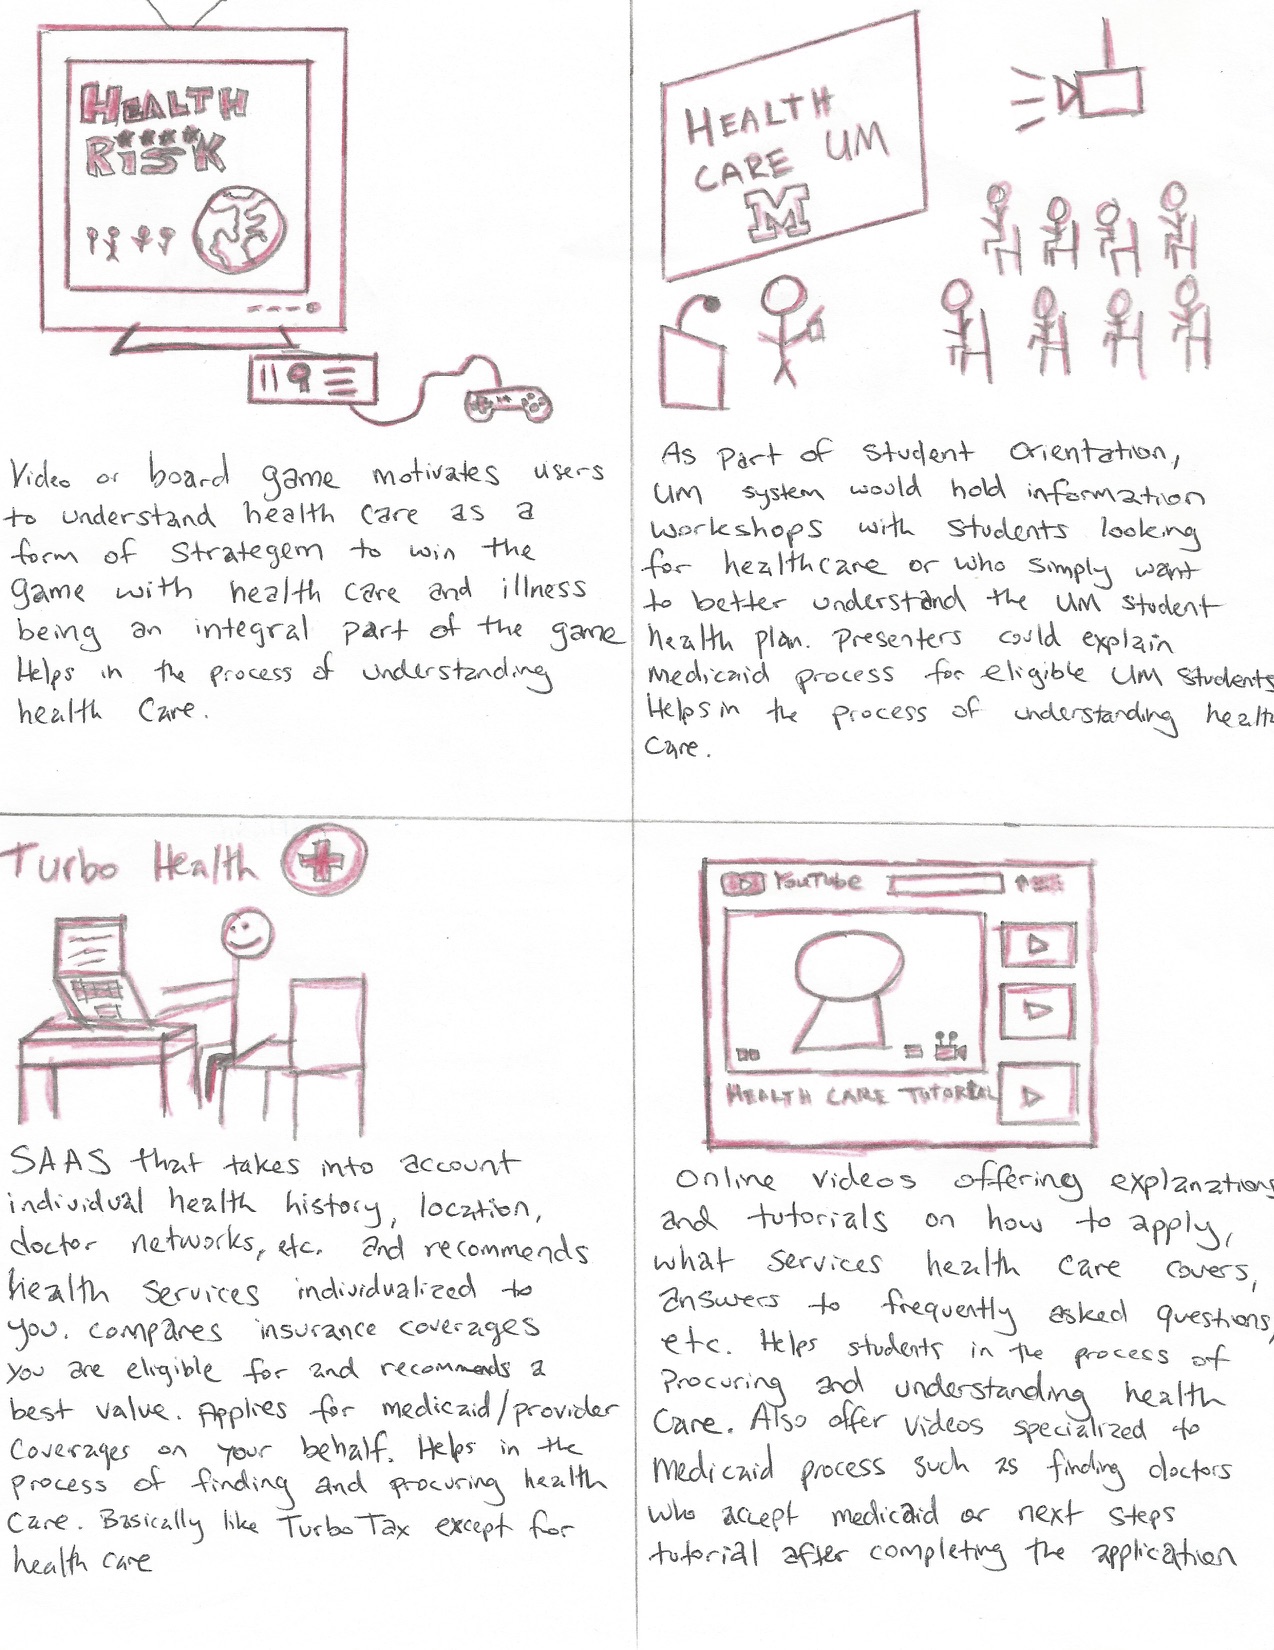 HEALTH
RISK
Video or board game motivates users
to understand health care as a
form of Strategem to win the
game with health care and illness
being an integral part of the game
Helps in the process of understanding
health Care.
HEALTH
CARE UM
M
As part of Student Orientation,
UM system would hold information
workshops with students looking
for healthcare or who simply want
to better understand the UM student
health plan. Presenters could explain
Medicaid process for eligible UM students
Helps in the process of understanding health
Care.
Turbo Health
SAAS that takes into account
individual health history, location,
doctor networks, etc. and recommends
health services individualized to
you. Compares insurance coverages
you are eligible for and recommends a
best value. Applies for medicaid/provider
coverages on your behalf. Helps in the
process of finding and procuring health
Care. Basically like TurboTax except for
health care
YouTube
HEALTH CARE TUTORIAL
Online videos offering explanations
and tutorials on how to apply,
what services health care covers,
answers to frequently asked questions,
etc. Helps students in the process of
Procuring and understanding health
Care. Also offer videos specialized to
Medicaid process such as finding doctors
who accept medicaid or next steps
tutorial after completing the application